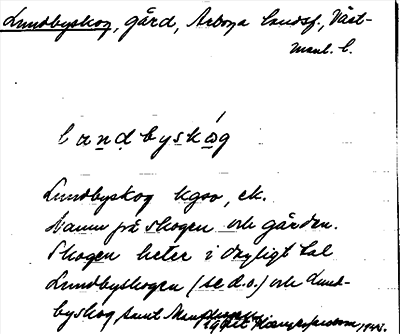 Lundbyskog, gård, Arboga landsf., Väst-
manl. l.
landbyskóg
Lundbyskog kgoo, ek.
Namn på skogen och gården.
Skogen heter i dagligt tal
Lundbyskogen (se d.o.) och Lund-
byskog samt